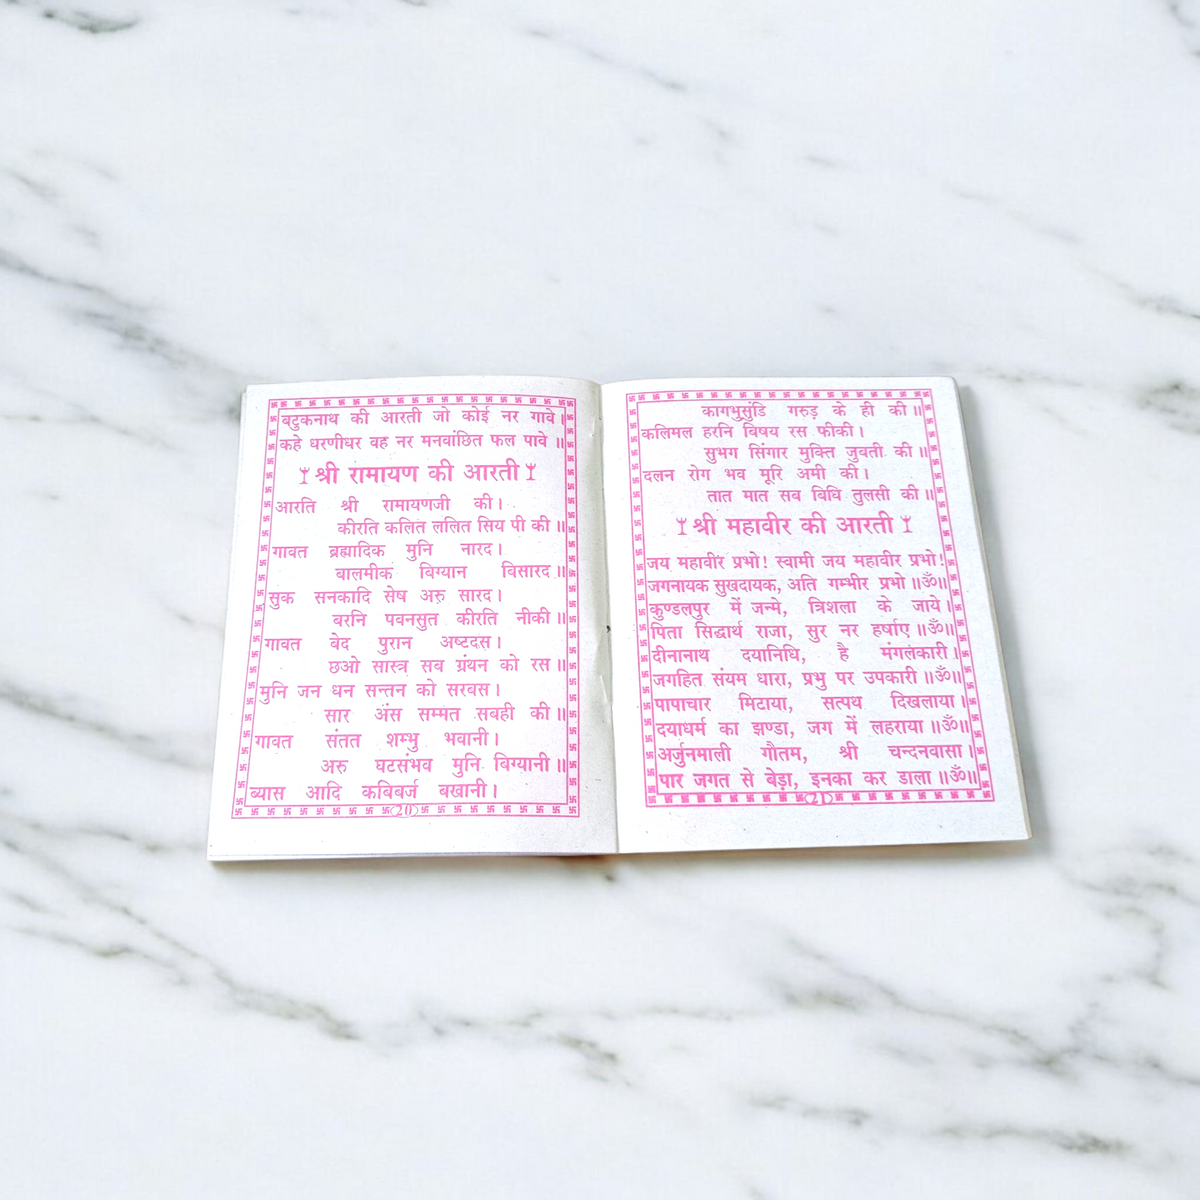 बटुकनाथ की आरती जो कोई नर गावे।
कहे धरणीधर वह नर मनवांछित फल पावे॥
श्री रामायण की आरती
आरति श्री रामायणजी की।
कीरति कलित ललित सिय पी की॥
गावत ब्रह्मादिक मुनि नारद।
बालमीक विग्यान विसारद॥
सुक सनकादि सेष अरु सारद।
वरनि पवनसुत कीरति नीकी॥
गावत वेद पुरान अष्टदस।
छओ सास्त्र सव ग्रंथन को रस॥
मुनि जन धन सन्तन को सरवस।
सार अंस सम्मत सबही की॥
गावत संतत शम्भु भवानी।
अरु घटसंभव मुनि विग्यानी॥
ब्यास आदि कविबर्ज बखानी।
(20)
कागभुसुंडि गरुड़ के ही की॥
कलिमल हरनि विषय रस फीकी।
सुभग सिंगार मुक्ति जुवती की॥
दलन रोग भव मूरि अमी की।
तात मात सव विधि तुलसी की॥
श्री महावीर की आरती
जय महावीर प्रभो! स्वामी जय महावीर प्रभो!
जगनायक सुखदायक, अति गम्भीर प्रभो॥ॐ॥
कुण्डलपुर में जन्मे, त्रिशला के जाये।
पिता सिद्धार्थ राजा, सुर नर हर्षाए॥ॐ॥
दीनानाथ दयानिधि, है मंगलकारी।
जगहित संयम धारा, प्रभु पर उपकारी॥ॐ॥
पापाचार मिटाया, सत्पथ दिखलाया।
दयाधर्म का झण्डा, जग में लहराया॥ॐ॥
अर्जुनमाली गौतम, श्री चन्दनवासा।
पार जगत से बेड़ा, इनका कर डाला॥ॐ॥
(21)